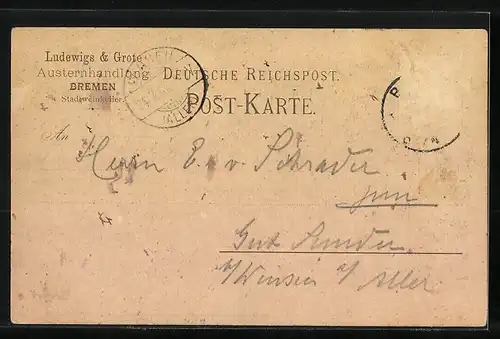 Ludewigs & Grote
Austernhandlung
BREMEN
Stadtweinkeller.
DEUTSCHE REICHSPOST.
POST-KARTE.
(ALLER)
An
Herrn E. v. Schrader
jun
Gut Sunder
b/Winsen a/ Aller